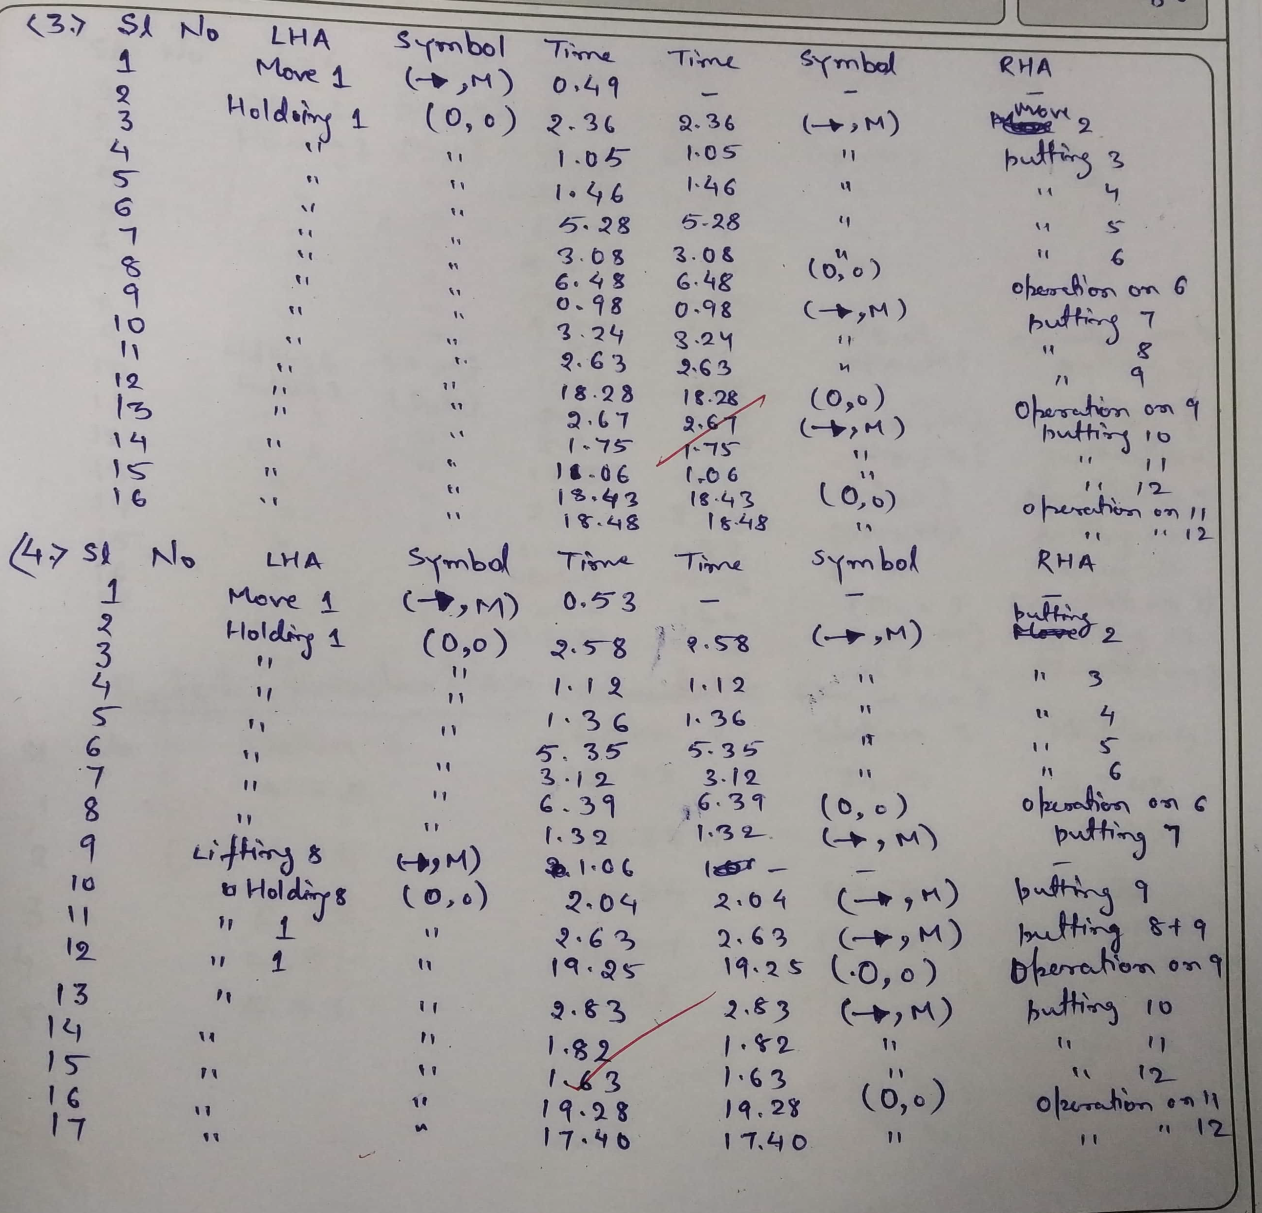 (3.) Sl No LHA Symbol Time Time Symbol RHA
1 Move 1 (→,M) 0.49 - - -
2 Holding 1 (0,0) 2.36 2.36 (→,M) Move 2
3 " " 1.05 1.05 " putting 3
4 " " 1.46 1.46 " " 4
5 " " 5.28 5.28 " " 5
6 " " 3.08 3.08 " " 6
7 " " 6.48 6.48 (0,0) operation on 6
8 " " 0.98 0.98 (→,M) putting 7
9 " " 3.24 3.24 " " 8
10 " " 2.63 2.63 " " 9
11 " " 18.28 18.28 (0,0) Operation on 9
12 " " 2.67 2.67 (→,M) putting 10
13 " " 1.75 1.75 " " 11
14 " " 1.06 1.06 " " 12
15 " " 18.43 18.43 (0,0) operation on 11
16 " " 18.48 18.48 " " " 12
(4.) Sl No LHA Symbol Time Time Symbol RHA
1 Move 1 (→,M) 0.53 - - -
2 Holding 1 (0,0) 2.58 2.58 (→,M) putting 2
3 " " 1.12 1.12 " " 3
4 " " 1.36 1.36 " " 4
5 " " 5.35 5.35 " " 5
6 " " 3.12 3.12 " " 6
7 " " 6.39 6.39 (0,0) operation on 6
8 " " 1.32 1.32 (→,M) putting 7
9 Lifting 8 (→,M) 1.06 - - -
10 Holding 8 (0,0) 2.04 2.04 (→,M) putting 9
11 " 1 " 2.63 2.63 (→,M) putting 8+9
12 " 1 " 19.25 19.25 (0,0) Operation on 9
13 " " 2.83 2.83 (→,M) putting 10
14 " " 1.82 1.82 " " 11
15 " " 1.63 1.63 " " 12
16 " " 19.28 19.28 (0,0) Operation on 11
17 " " 17.40 17.40 " " " 12